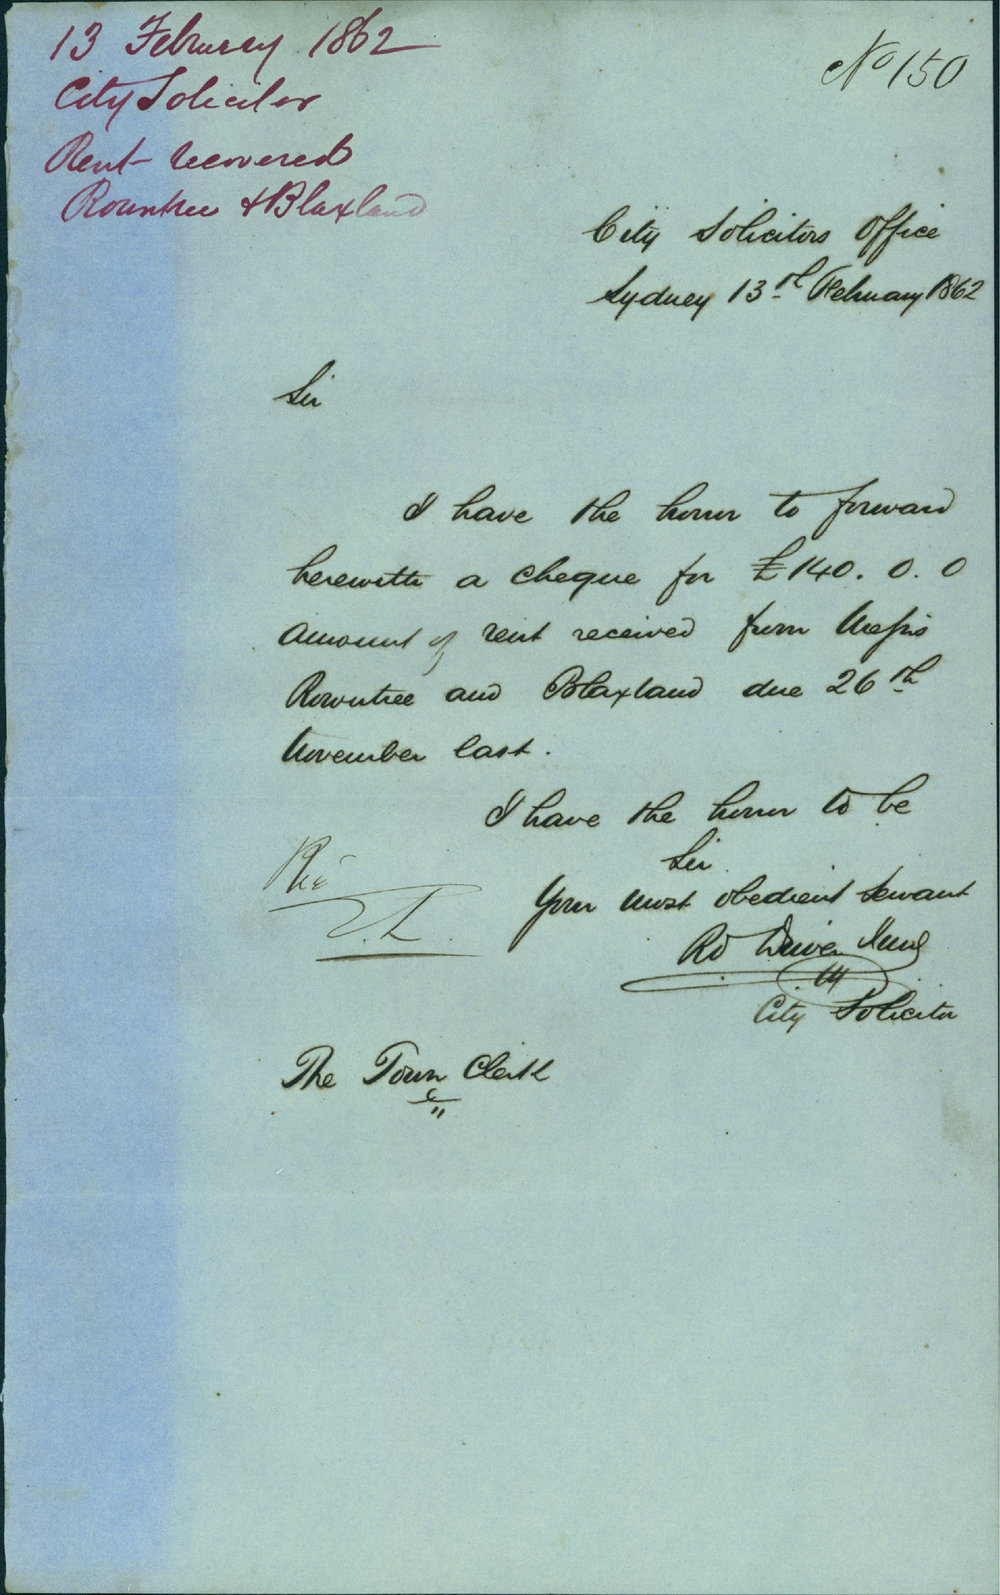 13 February 1862
City Solicitor
Rent recovered
Rountree & Blaxland
No 150
City Solicitors Office
Sydney 13th February 1862
Sir
I have the honor to forward
herewith a cheque for £140. 0. 0
amount of rent received from Messrs
Rowntree and Blaxland due 26th
November last.
I have the honor to be
Sir
Your most obedient Servant
Rd Driver Junr
City Solicitor
The Town Clerk